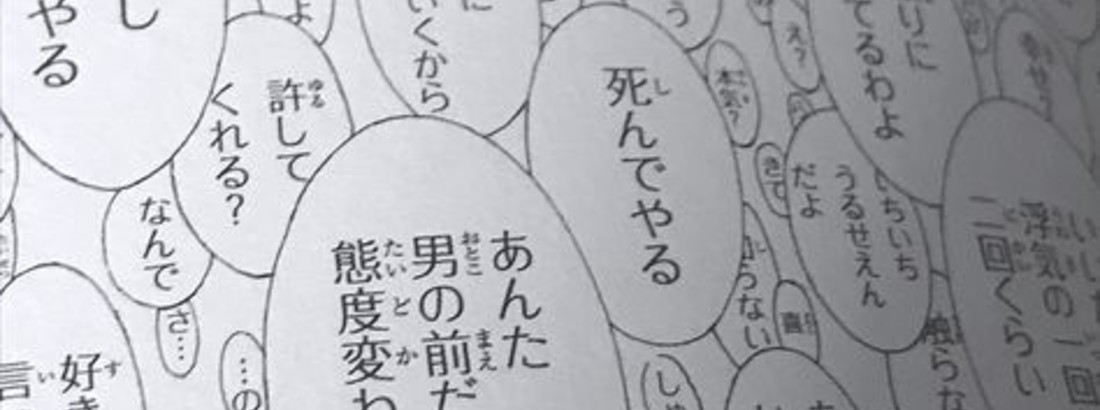 やる
し
許して
くれる?
なんで
さ…
好き
言
よ
に
いくから
…の
あんた
男の前だ
態度変わ
死んでやる
う
本気?
え?
きて
りに
てるわよ
いちいち
うるせえん
だよ
らない
喜
触らな
幸せ?
浮気の一回
二回くらい